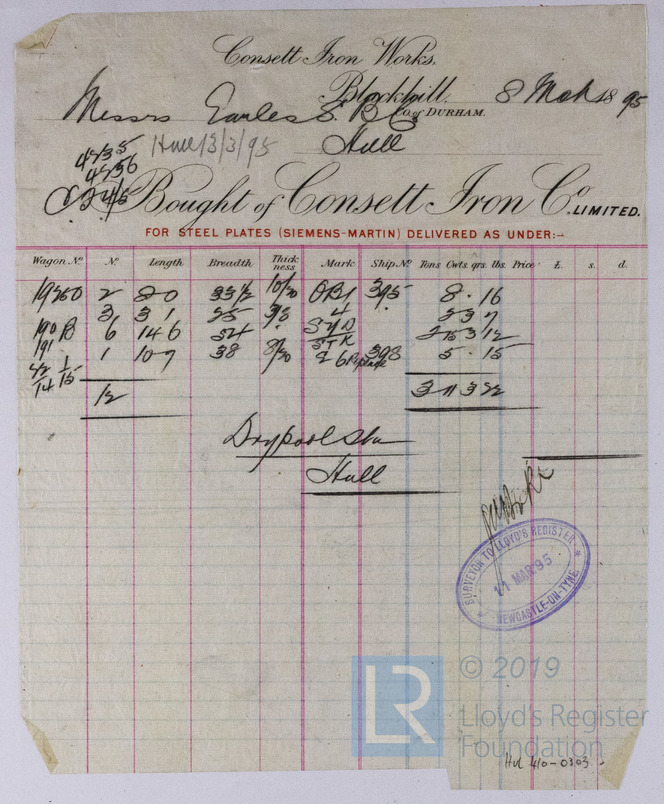 Consett Iron Works,
Blackhill, 8 Mch 1895
Messrs Earles S. B. Co.
Co. of DURHAM.
Hull
Hull 13/3/95
4735
4756
Bought of Consett Iron Co. LIMITED.
FOR STEEL PLATES (SIEMENS-MARTIN) DELIVERED AS UNDER:—
Wagon No. No. Length Breadth Thickness Mark Ship No. Tons Cwts. qrs. lbs. Price £ s. d.
19250 2 8 0 33½ 10/20 395 8 . 16
3 3 1 25 4 3 3 7
190 B 6 14 6 54 2 15 3 12
191 1 10 7 38 398 5 . 15
14 15
12 3 11 3 22
Drypool Stn
Hull
SURVEYOR TO LLOYD'S REGISTER
11 MAR 95
NEWCASTLE-ON-TYNE
LR
© 2019
Lloyd's Register
Foundation
Hul 410-0303